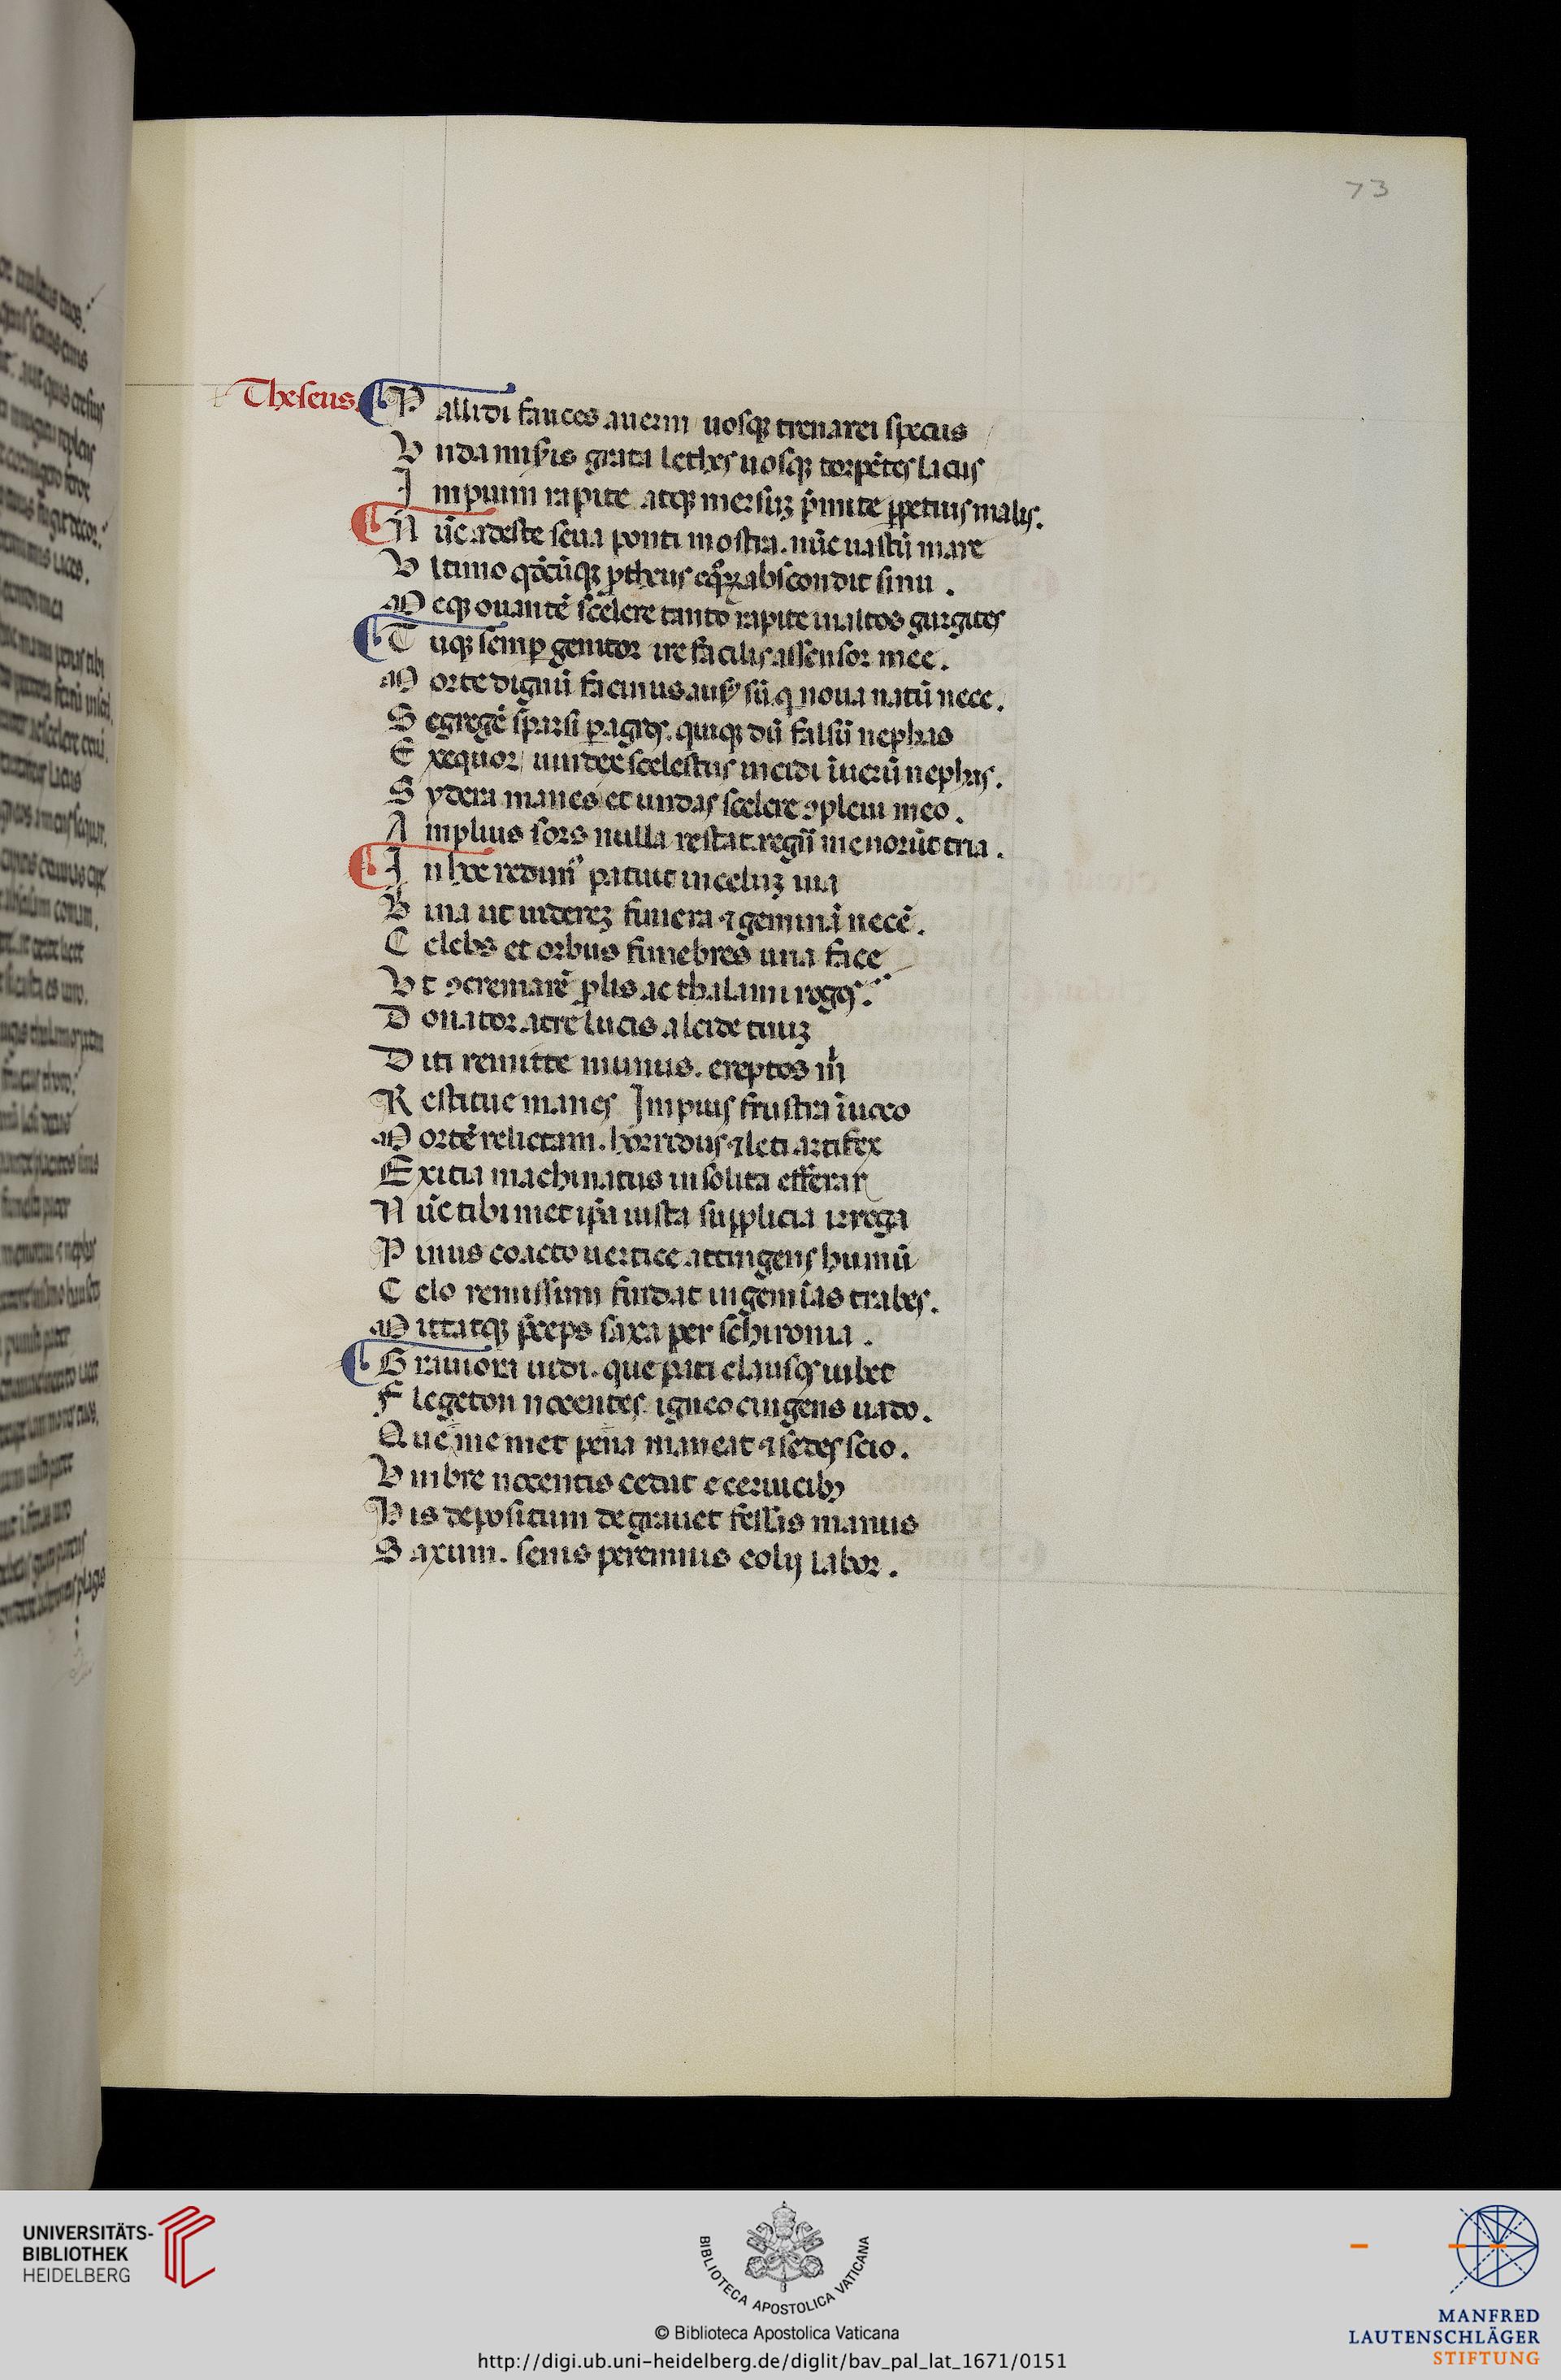 73
Theseus.
Pallidi fauces auerni uosqꝫ trenarei specus
Vnda miẜis grata lethes uosqꝫ torpẽtes lacus
Impium rapite atqꝫ mersuꝫ p̃mite ꝑpetuis malis.
Nũc adeste seua ponti mõstra. nũc uastũ mare
Vltimo qdcũqꝫ ꝓtheus eqͦꝝ abscondit sinu.
Meqꝫ ouantẽ scelere tanto rapite in altos gurgites
Tuqꝫ semꝑ genitor ire facilis assensor mee.
Morte dignũ facinus ausꝰ sũ. q̇ noua natũ nece.
Segregẽ sparsi ꝑ agros. quiqꝫ dũ falsũ nephas
Exequor uindex scelestus incidi ĩ uerũ nephas.
Sydera manes et undas scelere ꝯpleui meo.
Amplius sors nulla restat. regñ me norũt tria.
In hoc redimꝰ patuit in celuꝫ uia
Bina ut uidereꝫ funera ⁊ geminã necẽ.
Celebs et orbus funebres una face
Vt ꝯcremarẽ ꝓlis ac thalami rogos.
Donator atre lucis alcide tuuꝫ
Diti remitte munus. ereptos m̊
Restitue manes Impius frustra ĩuoco
Mortẽ relictam. horridus ⁊ leti artifex
Exitia machinatus insolita efferar
Nũc tibimet ip̃a iusta supplicia irroga
Pinus coacto uertice attingens humũ
Celo remissum findat in gemĩas trabes.
Mittatqꝫ p̃ceps saxa per schironia.
Grauiora uidi. que pati clausos iubet
Flegeton nocentes igneo cingens uado.
Que memet pena maneat ⁊ sedes scio.
Vmbre nocentis cedit e ceruicibꝫ
His depositum degrauet fessis manus
Saxum. senis peremnis eolij labor.
UNIVERSITÄTS-
BIBLIOTHEK
HEIDELBERG
BIBLIOTECA APOSTOLICA VATICANA
© Biblioteca Apostolica Vaticana
http://digi.ub.uni-heidelberg.de/diglit/bav_pal_lat_1671/0151
MANFRED
LAUTENSCHLÄGER
STIFTUNG